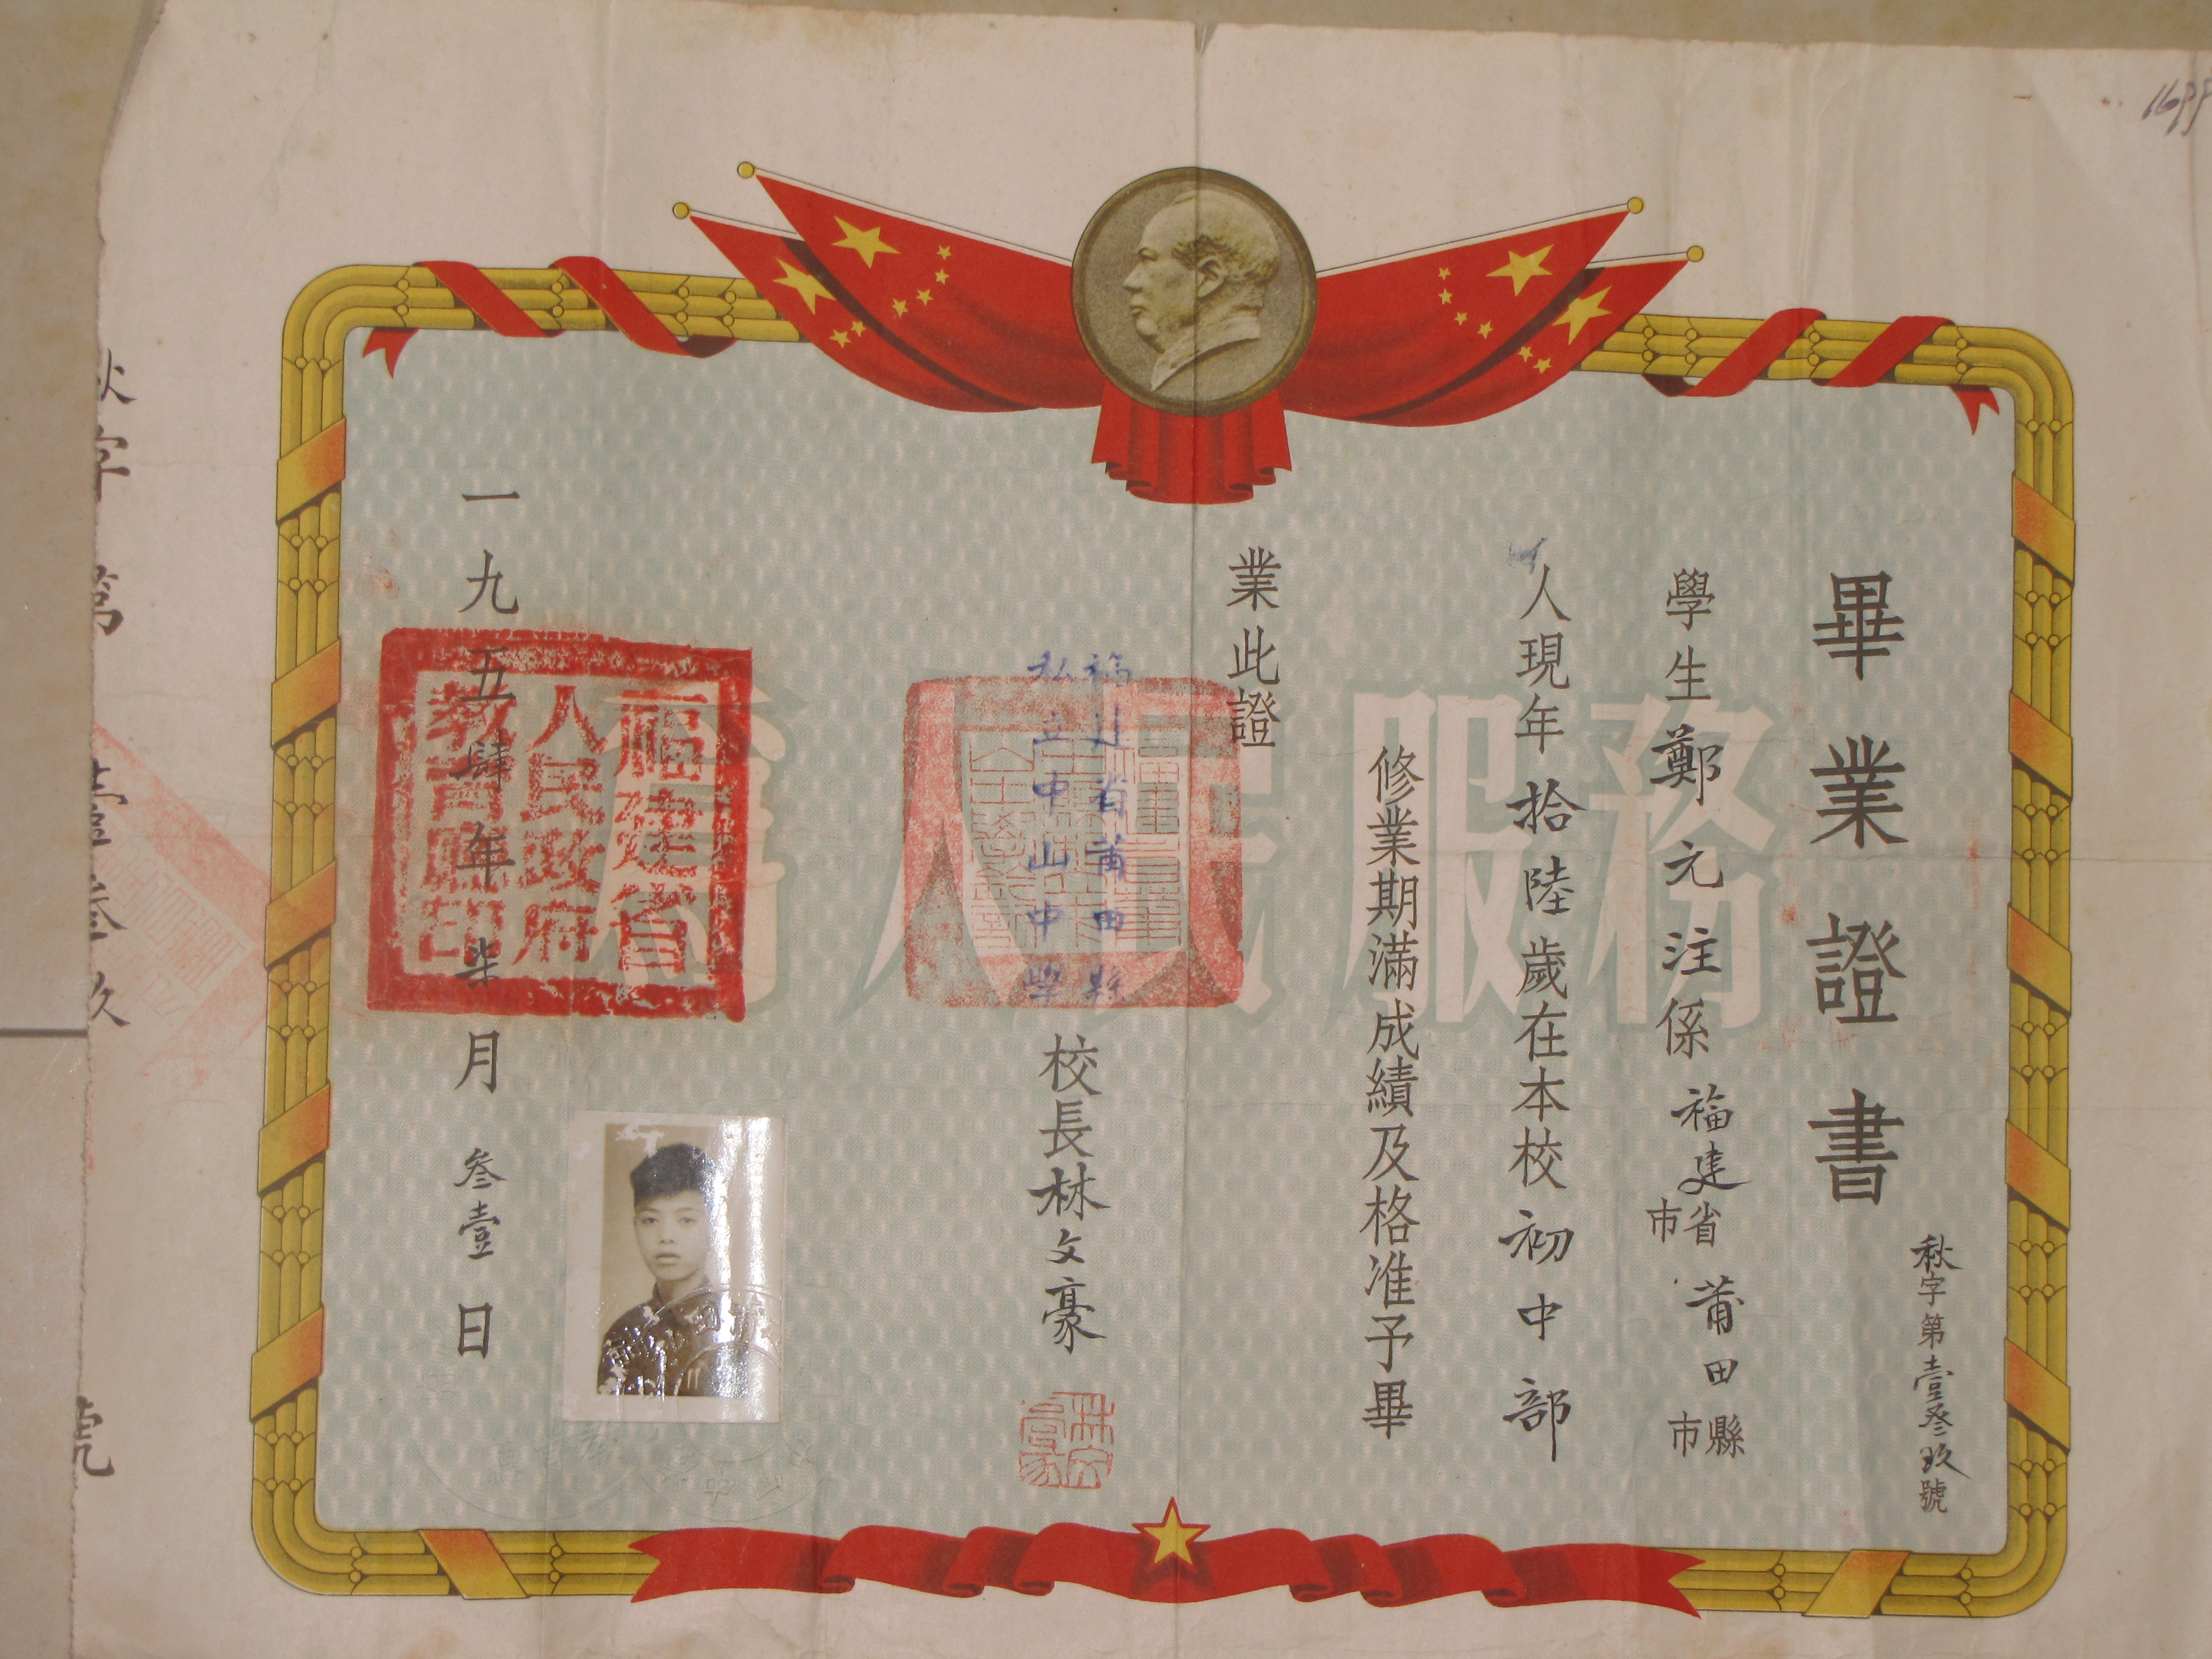 畢業證書
秋字第壹叄玖號
學生鄭元注係福建省市莆田縣市
人現年拾陸歲在本校初中部
修業期滿成績及格准予畢
業此證
福建省莆田縣
私立中山中學
校長林文豪
一九五肆年柒月叁壹日
福建省
人民政府
教育廳印
為人民服務
秋字第壹叄玖號